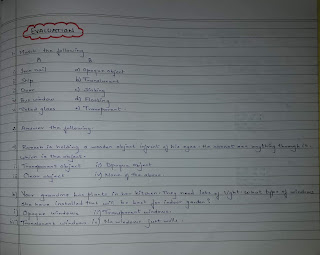 EVALUATION
1. Match the following.
A B
1. Iron nail a) Opaque object
2. Ship b) Translucent
3. Door c) Sinking
4. Bus window d) Floating
5. glass e) Transparent.
2. Answer the following.
1. Ramesh is holding a wooden object infront of his eyes. He cannot see anything through it.
Which is the object.
i) Transparent object ii) Opaque object
iii) Clean object iv) None of the above.
2) Your grandma has plants in her kitchen. They need lots of light. What type of windows
she have installed that will be best for indoor garden?
i) Opaque windows ii) Transparent windows
iii) Translucent windows iv) No windows just walls.